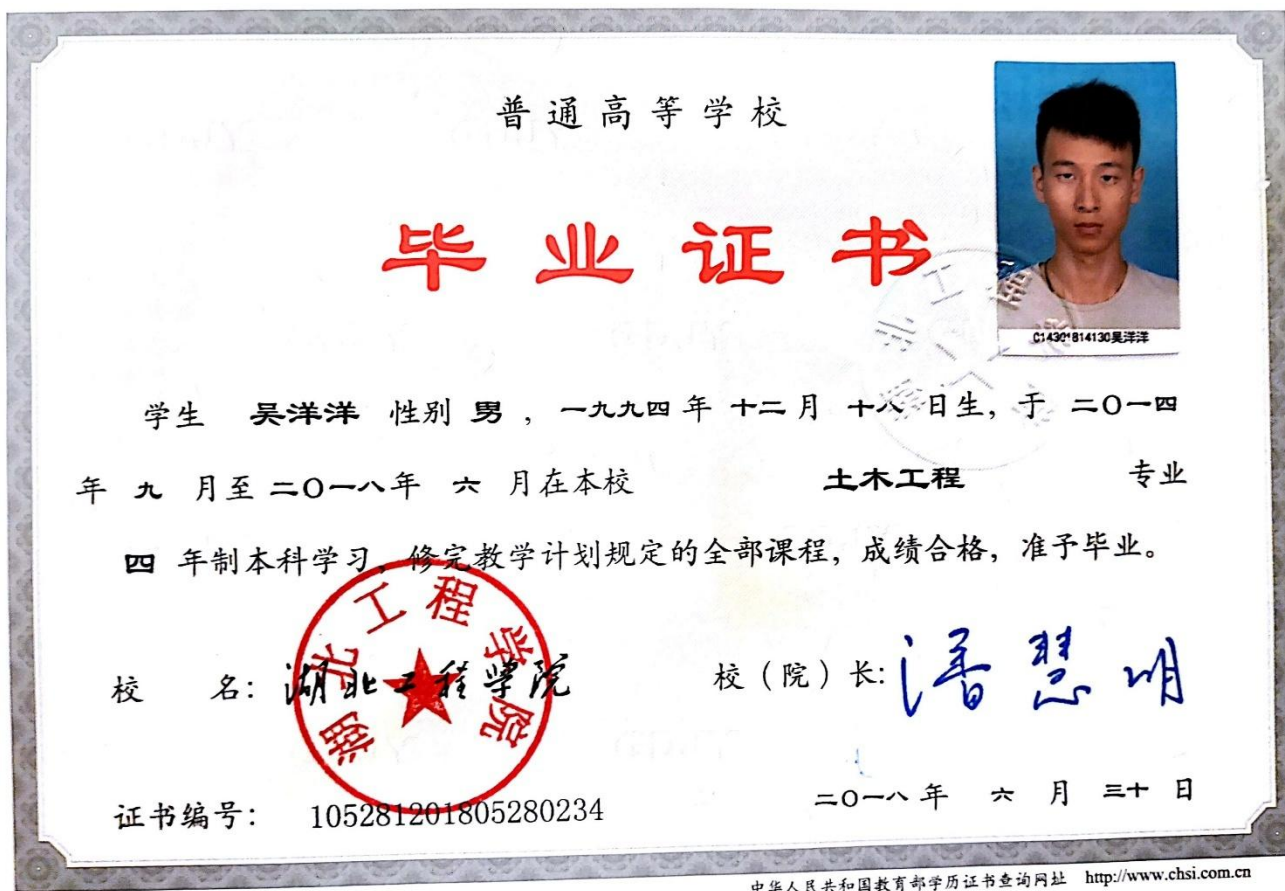 普通高等学校
毕业证书
C14301814130吴洋洋
学生 吴洋洋 性别 男 ，一九九四 年 十二 月 十八 日生，于 二〇一四
年 九 月至 二〇一八年 六 月在本校 土木工程 专业
四 年制本科学习，修完教学计划规定的全部课程，成绩合格，准予毕业。
湖北工程学院
校 名：湖北工程学院
校（院）长：潘慧明
证书编号： 105281201805280234
二〇一八 年 六 月 三十 日
中华人民共和国教育部学历证书查询网址 http://www.chsi.com.cn